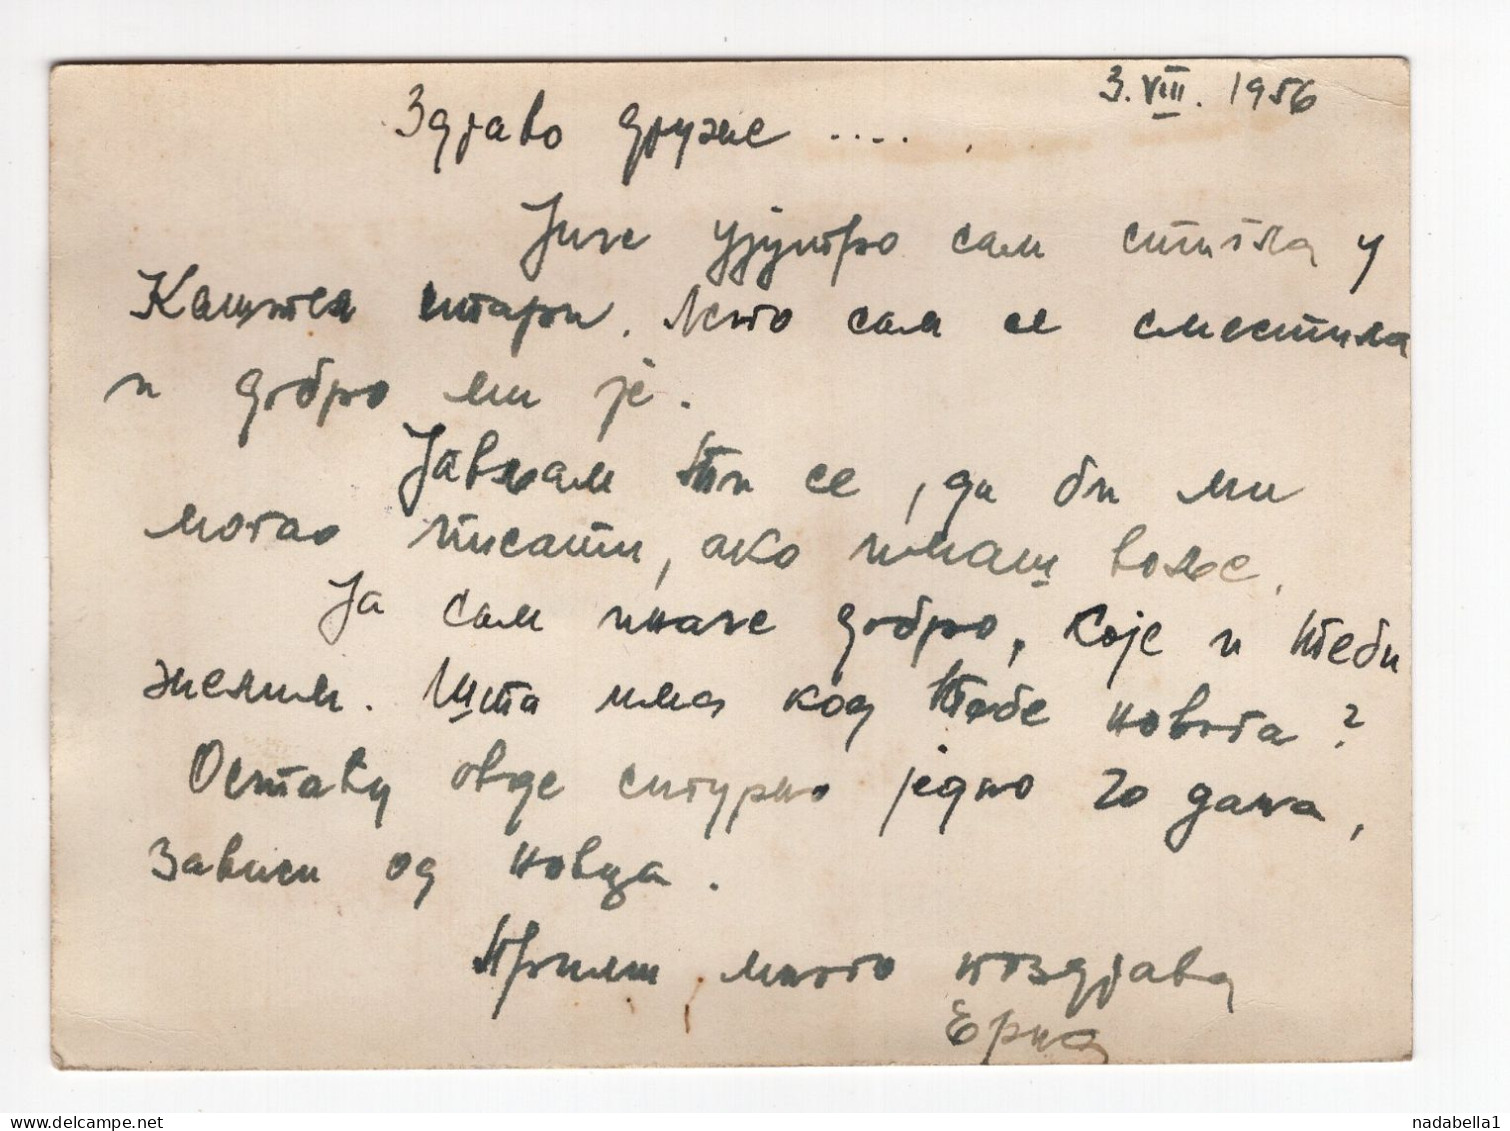 3. VIII. 1956
Здраво друже ....
Јуче ујутро сам стигла у
Каштел стари. Лепо сам се сместила
и добро ми је.
Јављам ти се, да би ми
могао писати, ако имаш воље.
Ја сам иначе добро, које и теби
желим. Шта има код тебе новога?
Остаћу овде сигурно једно 20 дана,
зависи од новца.
Прими много поздрава
Ерна
nadabella1
delcampe.net